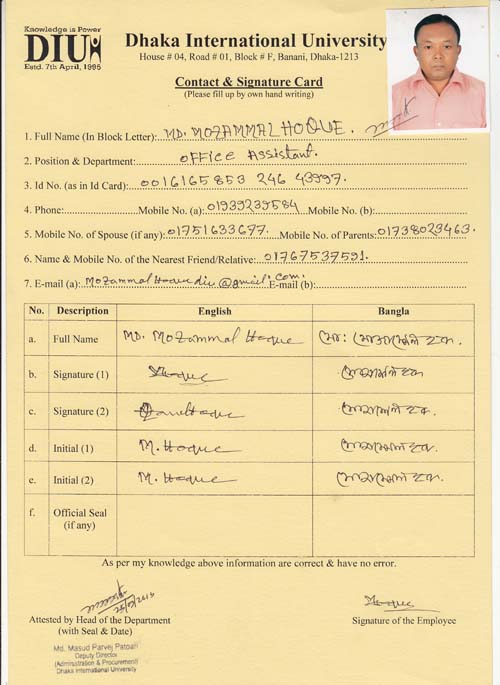 Knowledge is Power
DIU
Estd. 7th April, 1995
Dhaka International University
House # 04, Road # 01, Block # F, Banani, Dhaka-1213
Contact & Signature Card
(Please fill up by own hand writing)
1. Full Name (In Block Letter): MD. MOZAMMAL HOQUE.
2. Position & Department: OFFice Assistant.
3. Id No. (as in Id Card): 0016165853 246 43997.
4. Phone: Mobile No. (a): 01939239584 Mobile No. (b):
5. Mobile No. of Spouse (if any): 01751633677. Mobile No. of Parents: 01738023463.
6. Name & Mobile No. of the Nearest Friend/Relative: 01767537591.
7. E-mail (a): Mozammal Hoquediu@gmail.com. E-mail (b):
No. Description English Bangla
a. Full Name MD. Mozammal Hoque মো: মোজাম্মেল হক.
b. Signature (1) Hoque মোজাম্মেল হক
c. Signature (2) Hoque মোজাম্মেল হক.
d. Initial (1) M. Hoque মোজাম্মেল হক.
e. Initial (2) M. Hoque মোজাম্মেল হক.
f. Official Seal
(if any)
As per my knowledge above information are correct & have no error.
Attested by Head of the Department
(with Seal & Date)
Hoque
Signature of the Employee
Md. Masud Parvej Patoari
Deputy Director
(Administration & Procurement)
Dhaka International University